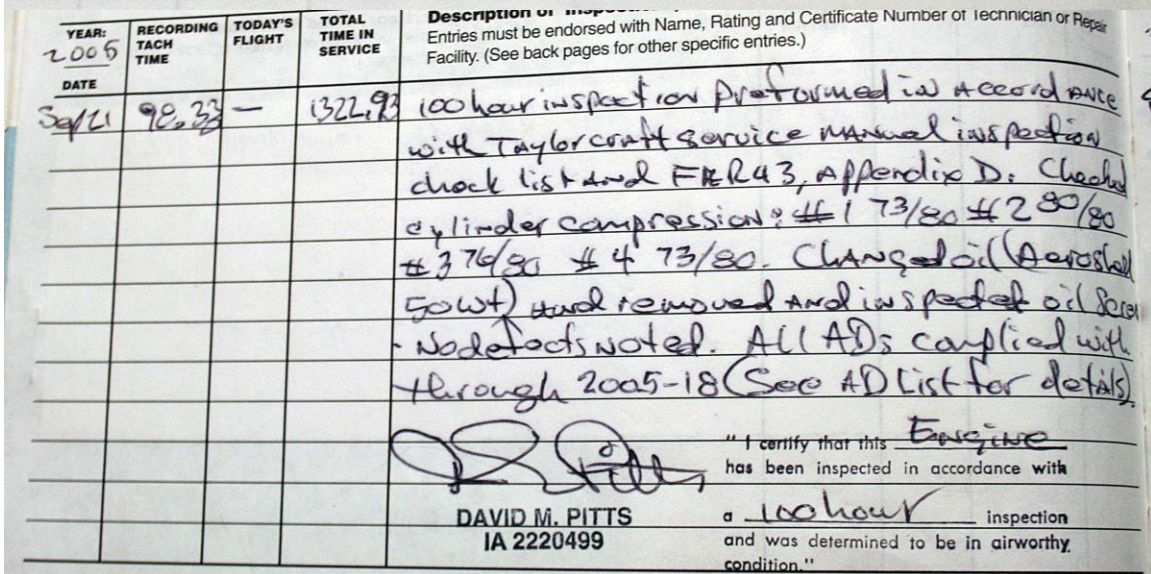 YEAR: 2005
DATE
RECORDING TACH TIME
TODAY'S FLIGHT
TOTAL TIME IN SERVICE
Description of Inspec
Entries must be endorsed with Name, Rating and Certificate Number of Technician or Repair
Facility. (See back pages for other specific entries.)
Sep/21 98.33 — 1322.93 100 hour inspection preformed in accordance
with Taylorcraft service manual inspection
check list and FAR43, Appendix D. Checked
cylinder compression: #1 73/80 #2 80/80
#3 76/80 #4 73/80. Changed oil (Aeroshell
50wt) and removed and inspected oil Screen
- No defects noted. All ADs complied with
through 2005-18 (See AD List for details)
"I certify that this Engine
has been inspected in accordance with
DAVID M. PITTS
IA 2220499
a 100 hour inspection
and was determined to be in airworthy
condition."